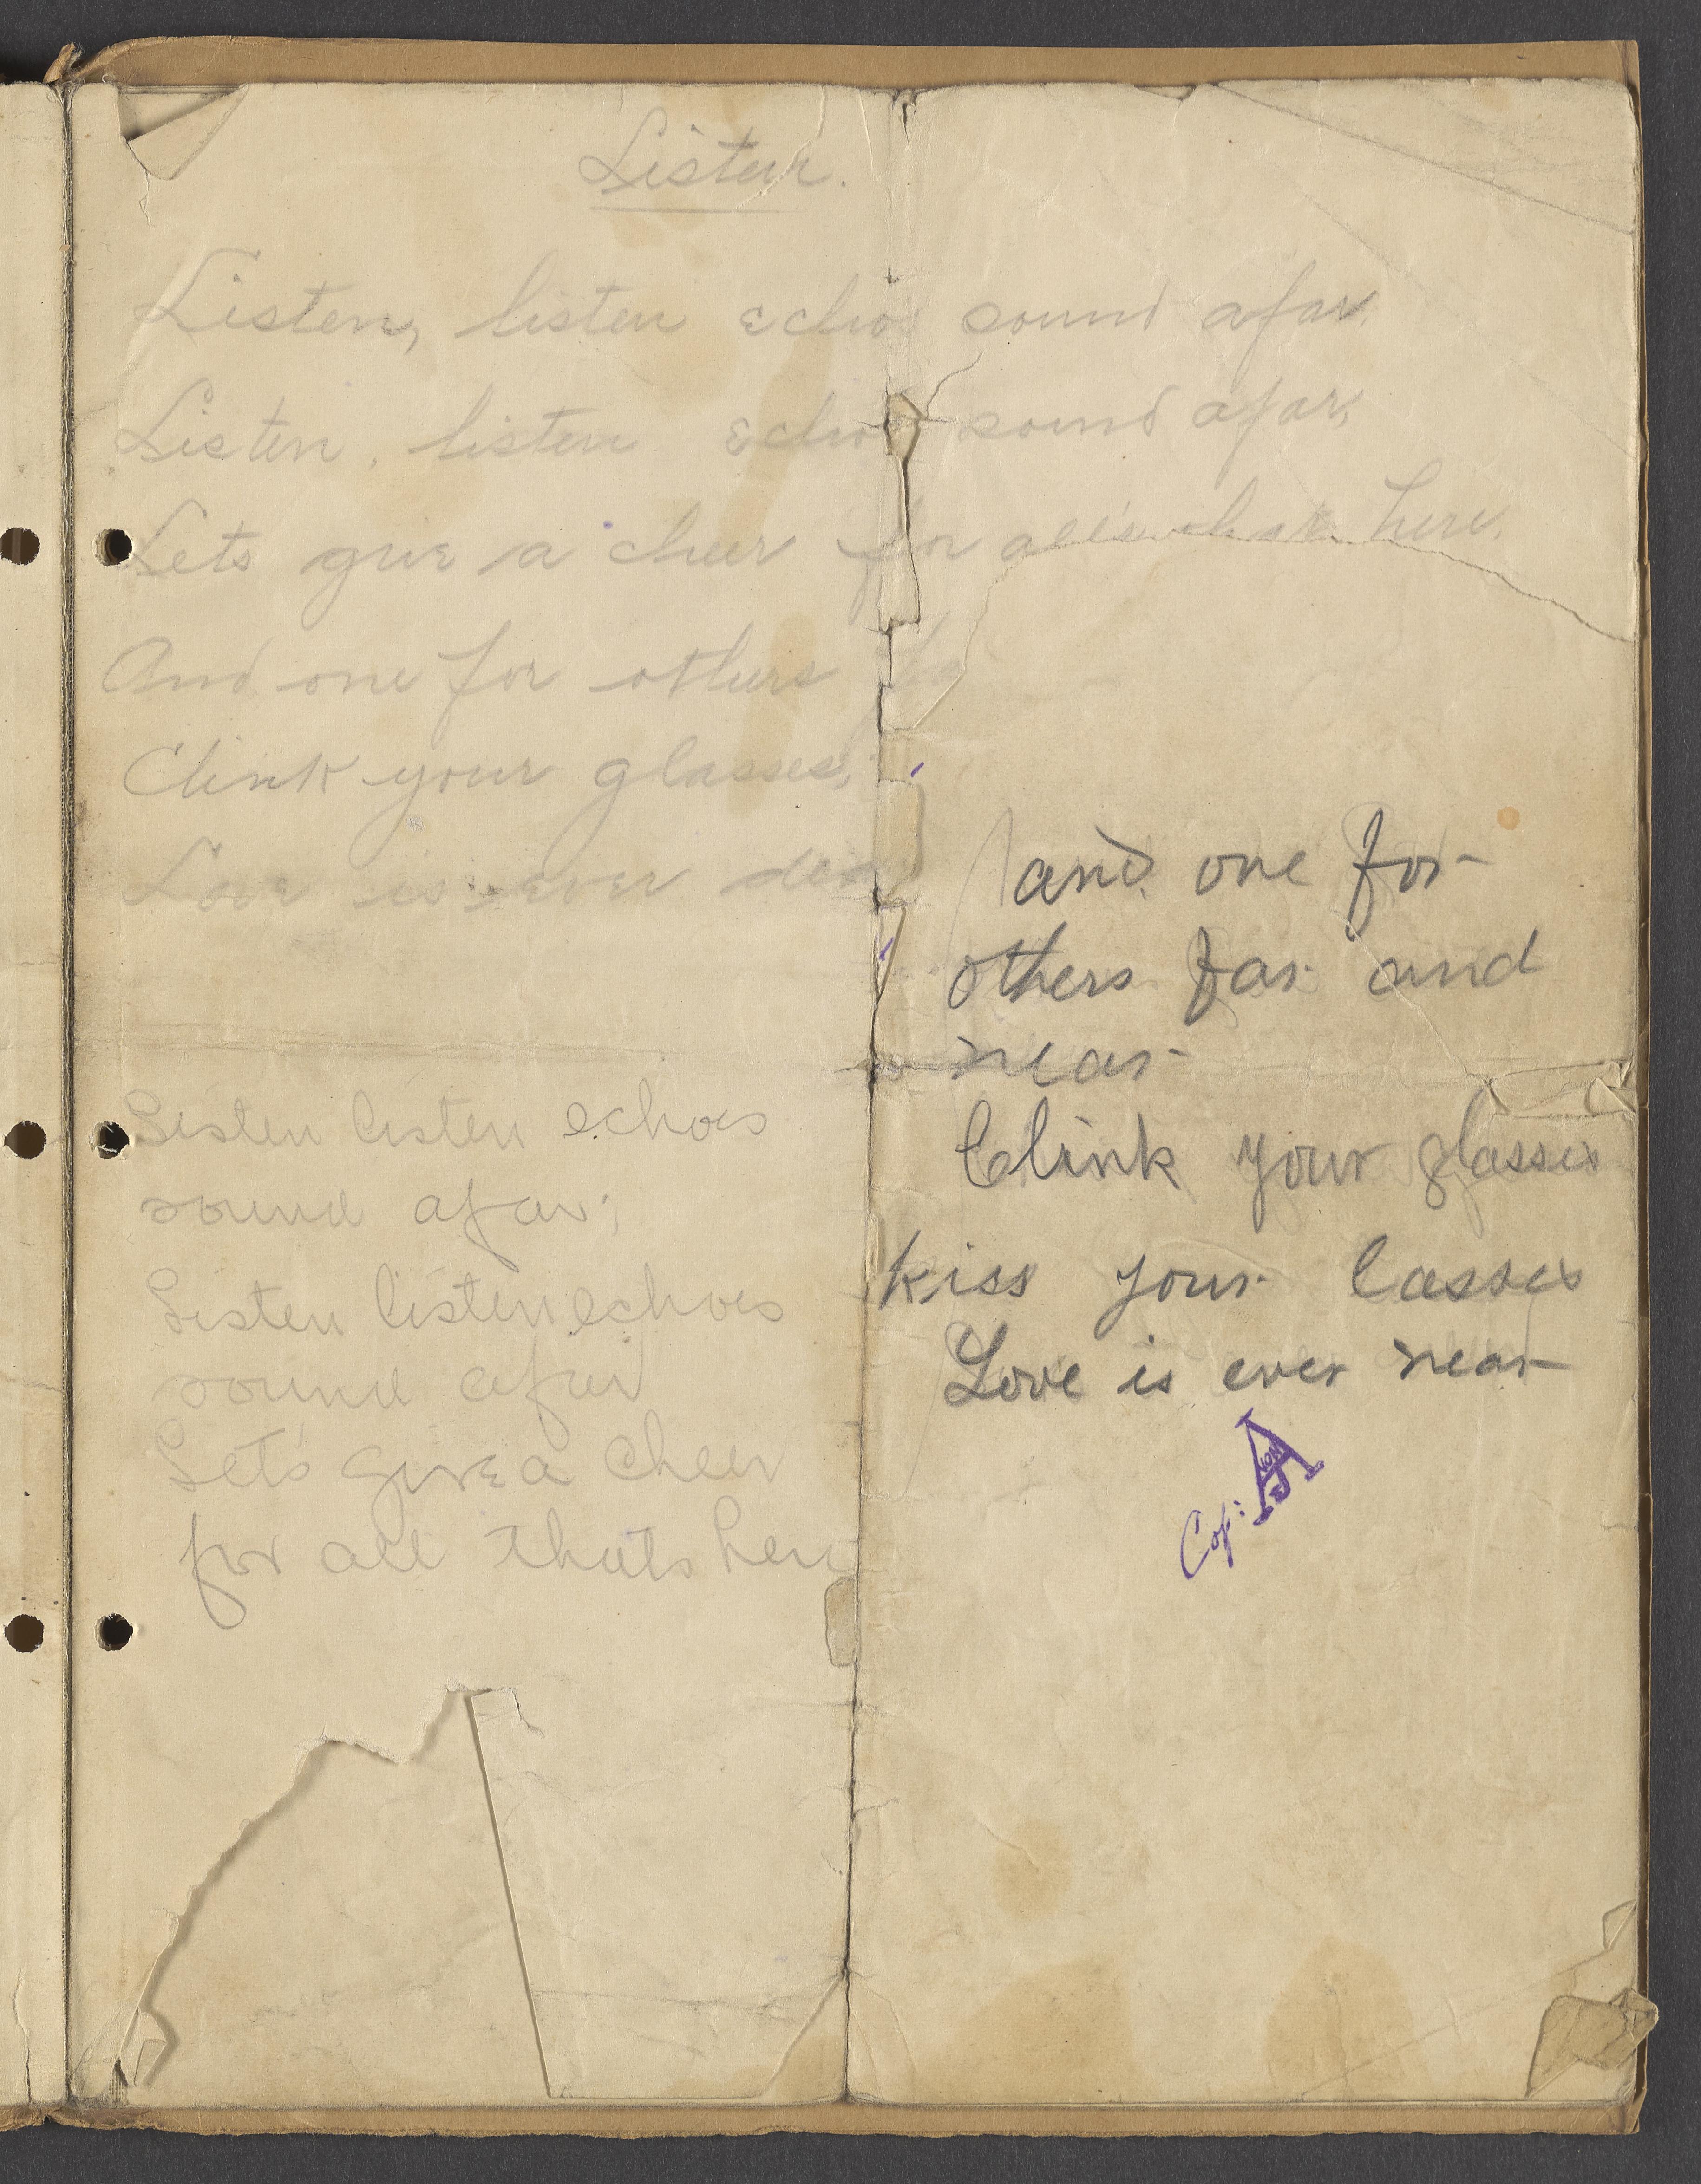 Listen.
Listen, listen echos sound afar.
Listen, listen echos sound afar,
Lets give a cheer for all's that's here.
And one for others
Clink your glasses,
Love is ever
Listen listen echoes
sound afar;
Listen listen echoes
sound afar
Let's give a cheer
for all thats here
and one for
others far and
near
Clink your glasses
kiss your lasses
Love is ever near
Cof: